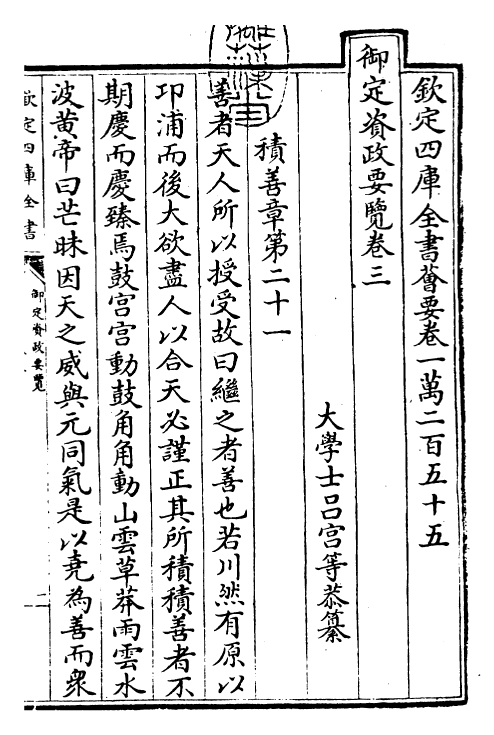 欽定四庫全書薈要卷一萬二百五十五
御定資政要覽卷三
大學士呂宮等恭纂
積善章第二十一
善者天人所以授受故曰繼之者善也若川然有原以
卬浦而後大欲盡人以合天必謹正其所積積善者不
期慶而慶臻焉鼓宮宮動鼓角角動山雲草莽雨雲水
波黄帝曰芒昧因天之威與元同氣是以堯為善而衆
欽定四庫全書
御定資政要覽